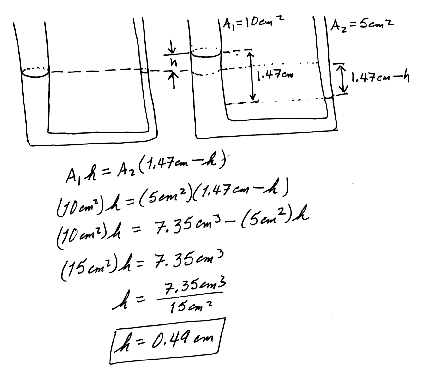 A₁=10cm²
A₂=5cm²
h
1.47cm
1.47cm-h
A₁h = A₂(1.47cm-h)
(10cm²)h = (5cm²)(1.47cm-h)
(10cm²)h = 7.35cm³-(5cm²)h
(15cm²)h = 7.35cm³
h = 7.35cm³/15cm²
h = 0.49cm